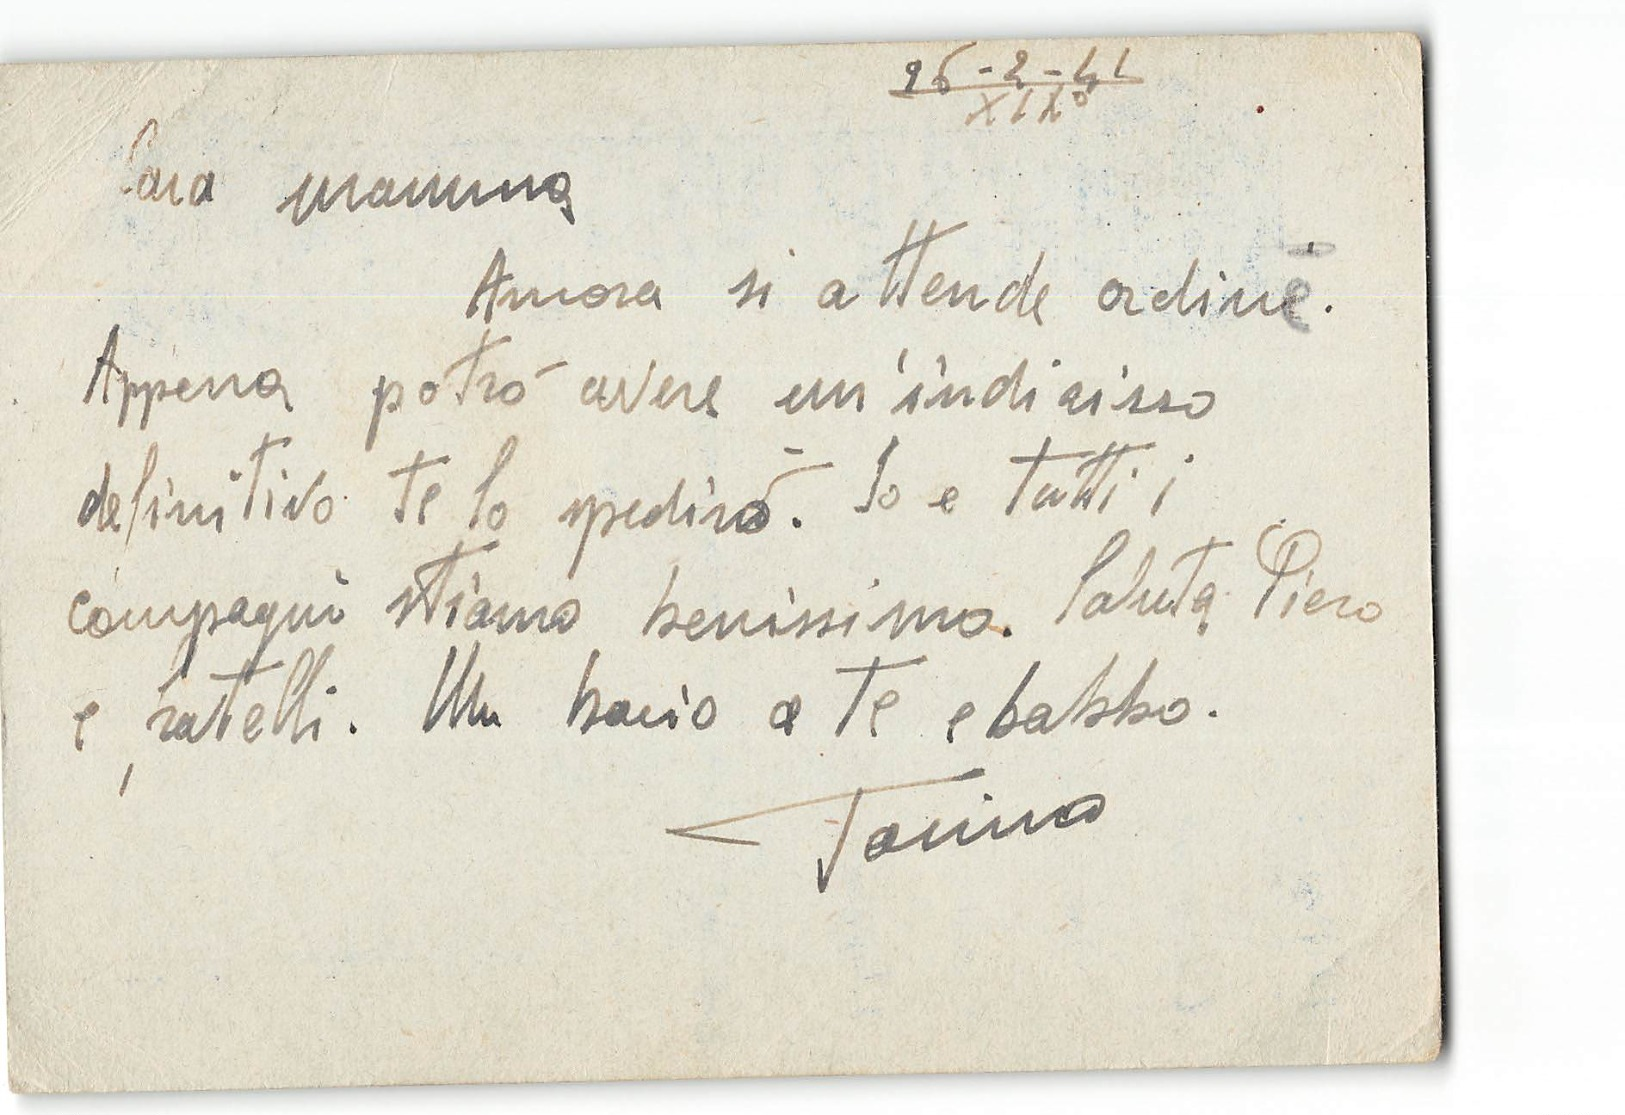 26-2-41
XIX°
Cara mamma
Ancora si attende ordine.
Appena potrò avere un'indirisso
definitivo te lo spedirò. Io e tutti i
compagni stiamo benissimo. Saluta Piero
e fratelli. Un bacio a te e babbo.
Tonino